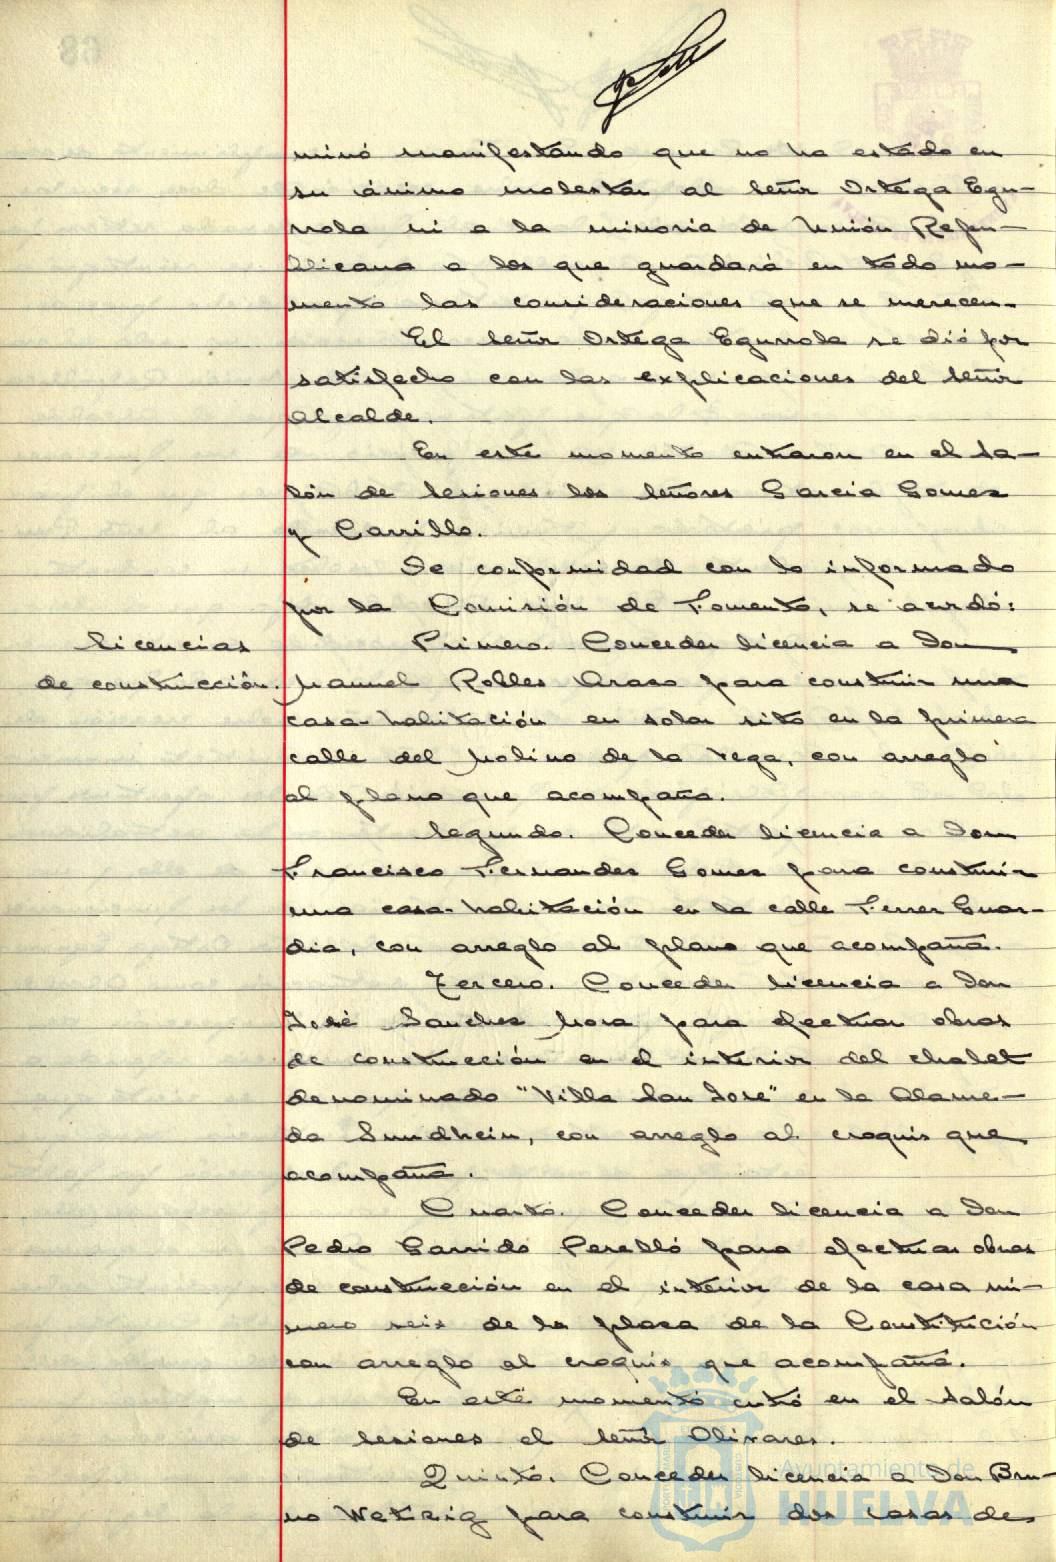 minó manifestando que no ha estado en
su ánimo molestar al Señor Ortega Egu-
rrola ni a la minoria de Unión Repu-
blicana a los que guardará en todo mo-
mento las consideraciones que se merecen.
El Señor Ortega Egurrola se dió por
satisfecho con las explicaciones del Señor
Alcalde.
En este momento entraron en el Sa-
lón de Sesiones los Señores Garcia Gomez
y Carrillo.
De conformidad con lo informado
por la Comisión de Fomento, se acordó:
Licencias
de construcción.
Primero. Conceder licencia a Don
Manuel Robles para construir una
casa-habitación en solar sito en la primera
calle del Molino de la Vega, con arreglo
al plano que acompaña.
Segundo. Conceder licencia a Don
Francisco Fernandez Gomez para construir
una casa-habitación en la calle Ferrer Guar-
dia, con arreglo al plano que acompaña.
Tercero. Conceder licencia a Don
José Sanchez Mora para efectuar obras
de construcción en el interior del chalet
denominado "Villa San José" en la Alame-
da Sundhein, con arreglo al croquis que
acompaña.
Cuarto. Conceder licencia a Don
Pedro Garrido Perelló para efectuar obras
de construcción en el interior de la casa nú-
mero seis de la plaza de la Constitución
con arreglo al croquis que acompaña.
En este momento entró en el Salón
de Sesiones el Señor Olivares.
Quinto. Conceder licencia a Don Bru-
no Wetzig para construir dos casas de
Ayuntamiento de
HUELVA